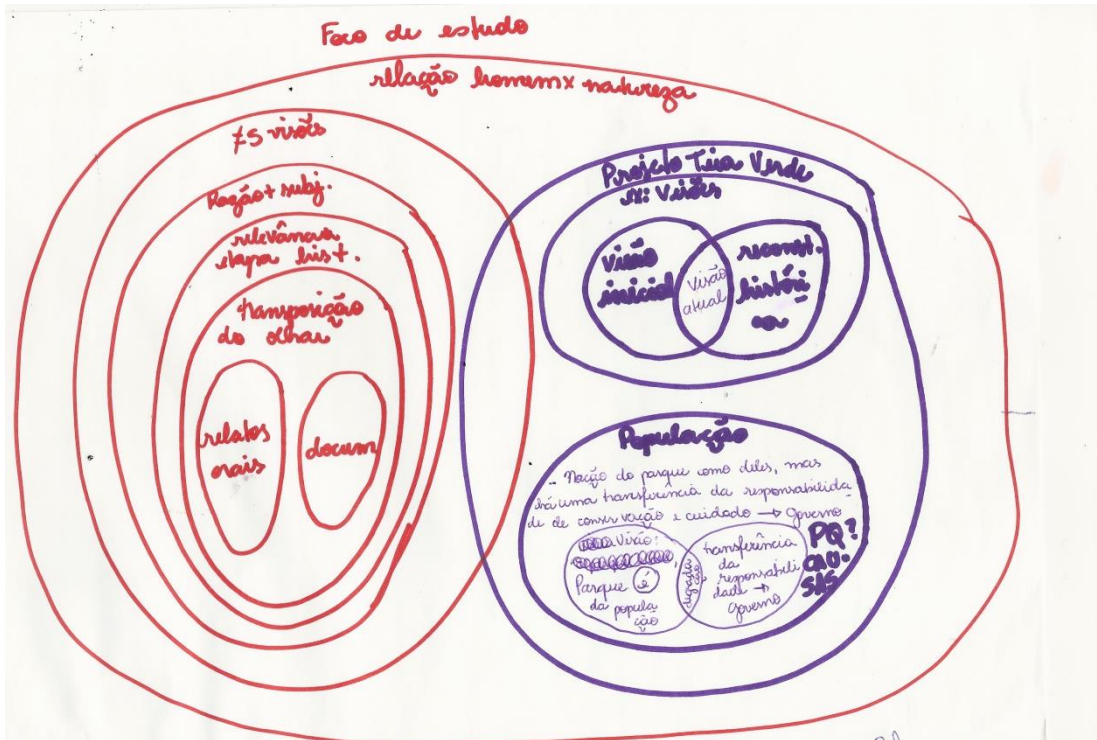 Foco de estudo
relação homem x natureza
≠s visões
Razão + subj.
relevância
etapa hist.
transposição
do olhar
relatos
orais
docum
Projeto Teia Verde
Visões
Visão
inicial
Visão
atual
reconst.
históri
ca
População
Noção do parque como deles, mas
há uma transferência da responsabilida
de de conservação e cuidado → Governo
Visão:
Parque é
da popula
ção
transferência
da
responsabili
dade →
Governo
PQ?
CAU-
SAS